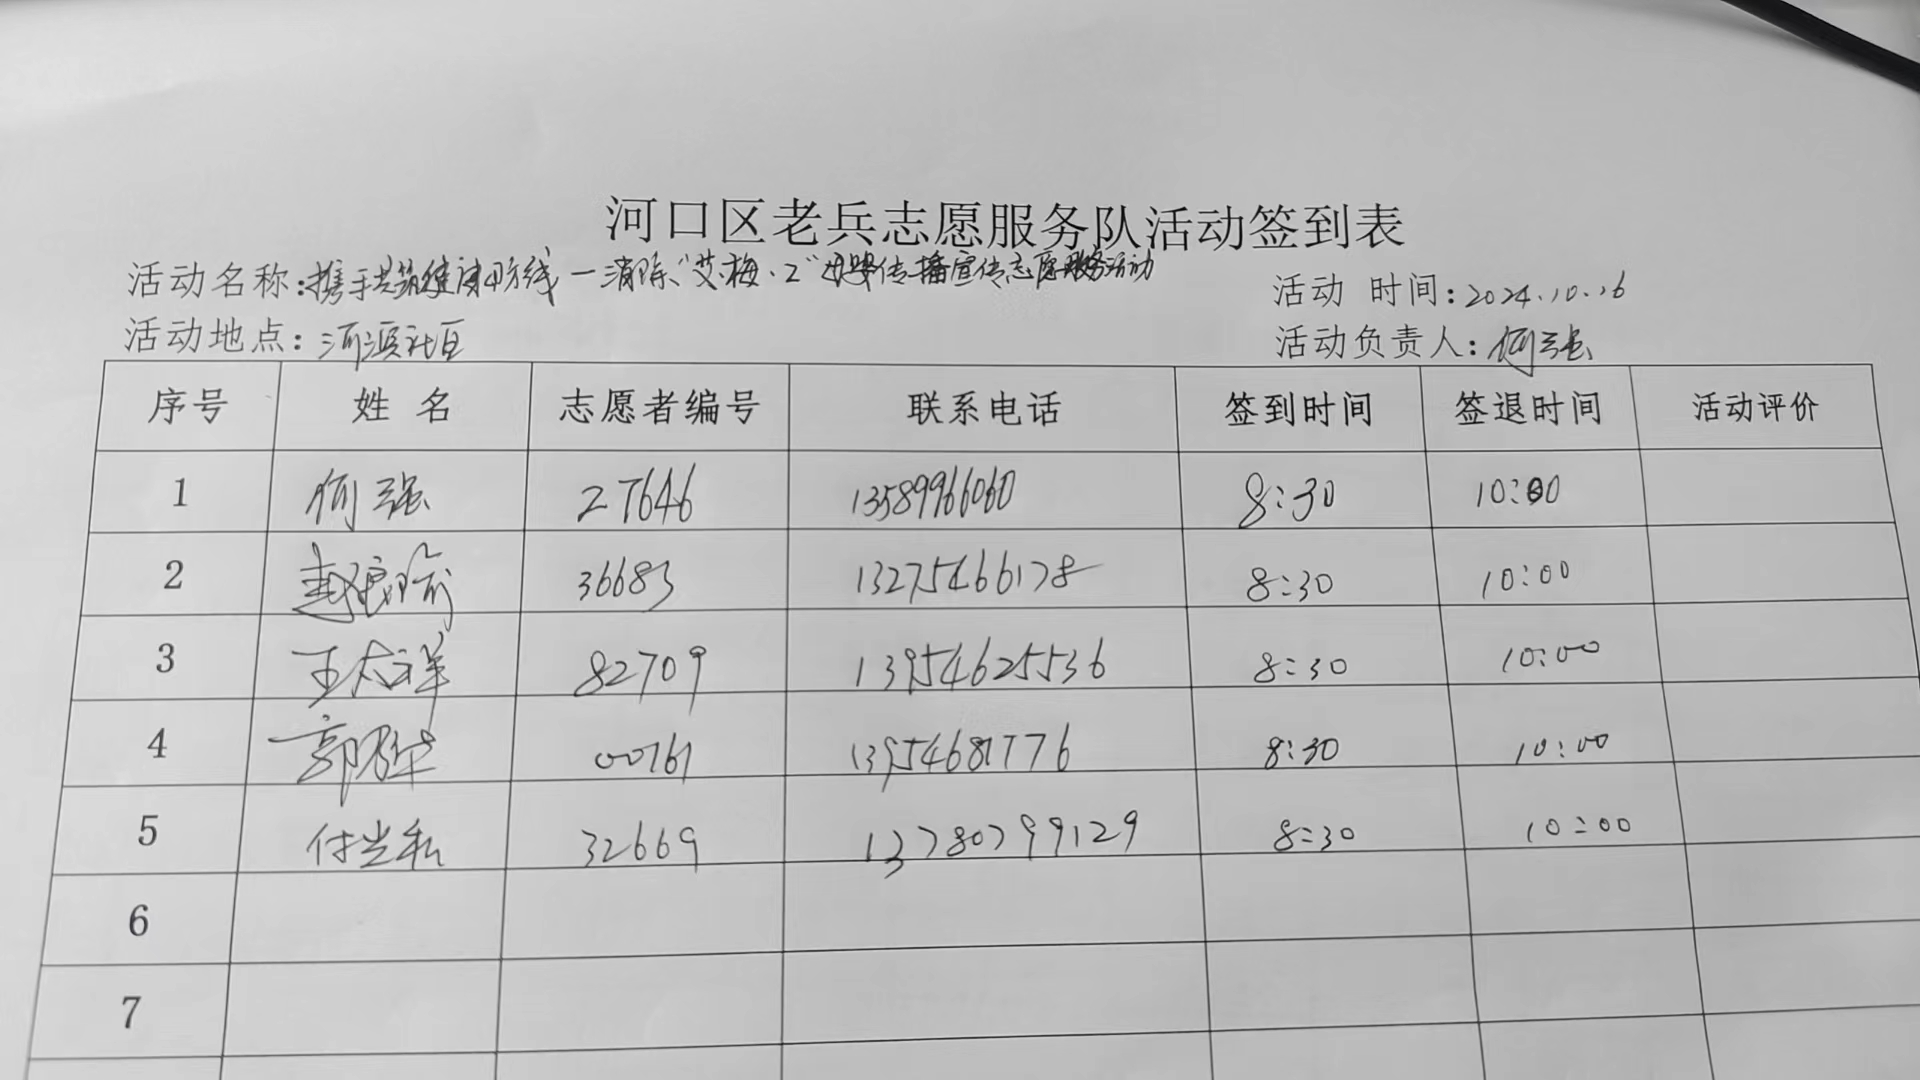 河口区老兵志愿服务队活动签到表
活动名称:携手共筑健康防线—消除“艾·梅·乙”母婴传播宣传志愿服务活动
活动 时间:2024.10.16
活动地点:河滨社区
活动负责人:何强
序号 姓 名 志愿者编号 联系电话 签到时间 签退时间 活动评价
1 何强 27646 13589966060 8:30 10:00
2 36683 13275466178 8:30 10:00
3 王太祥 82709 13954625536 8:30 10:00
4 00761 13954681776 8:30 10:00
5 32669 13780799129 8:30 10:00
6
7